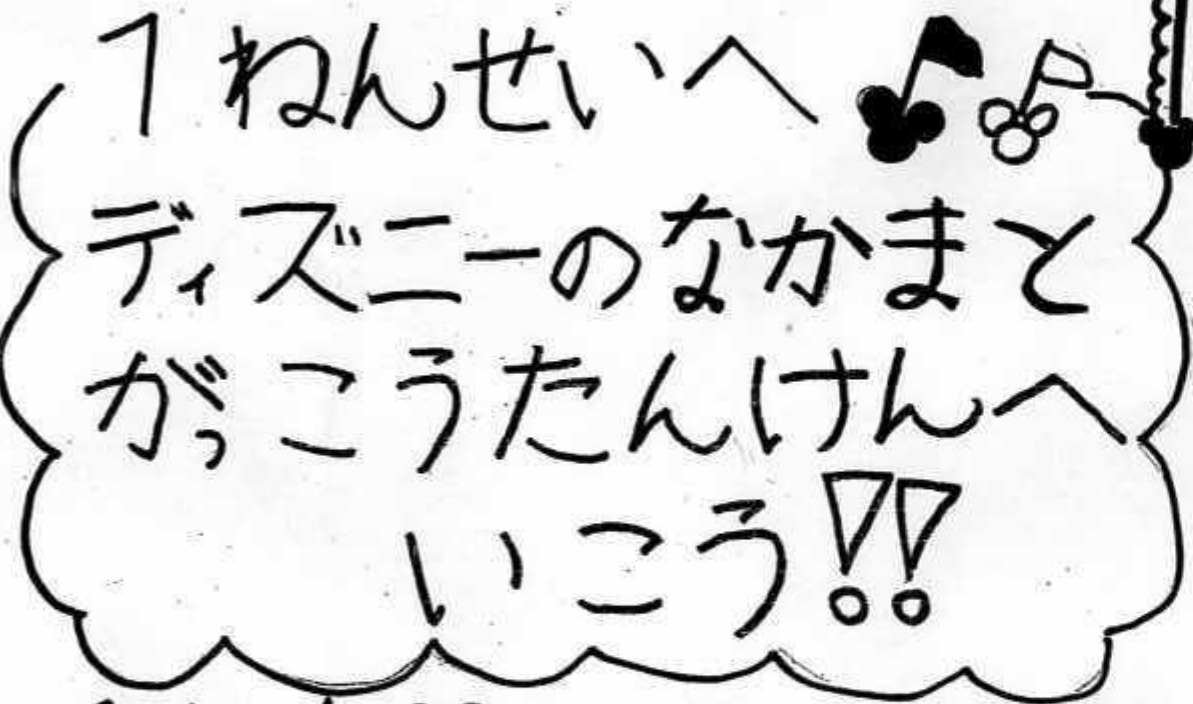 1ねんせいへ
ディズニーのなかまと
がっこうたんけんへ
いこう!!